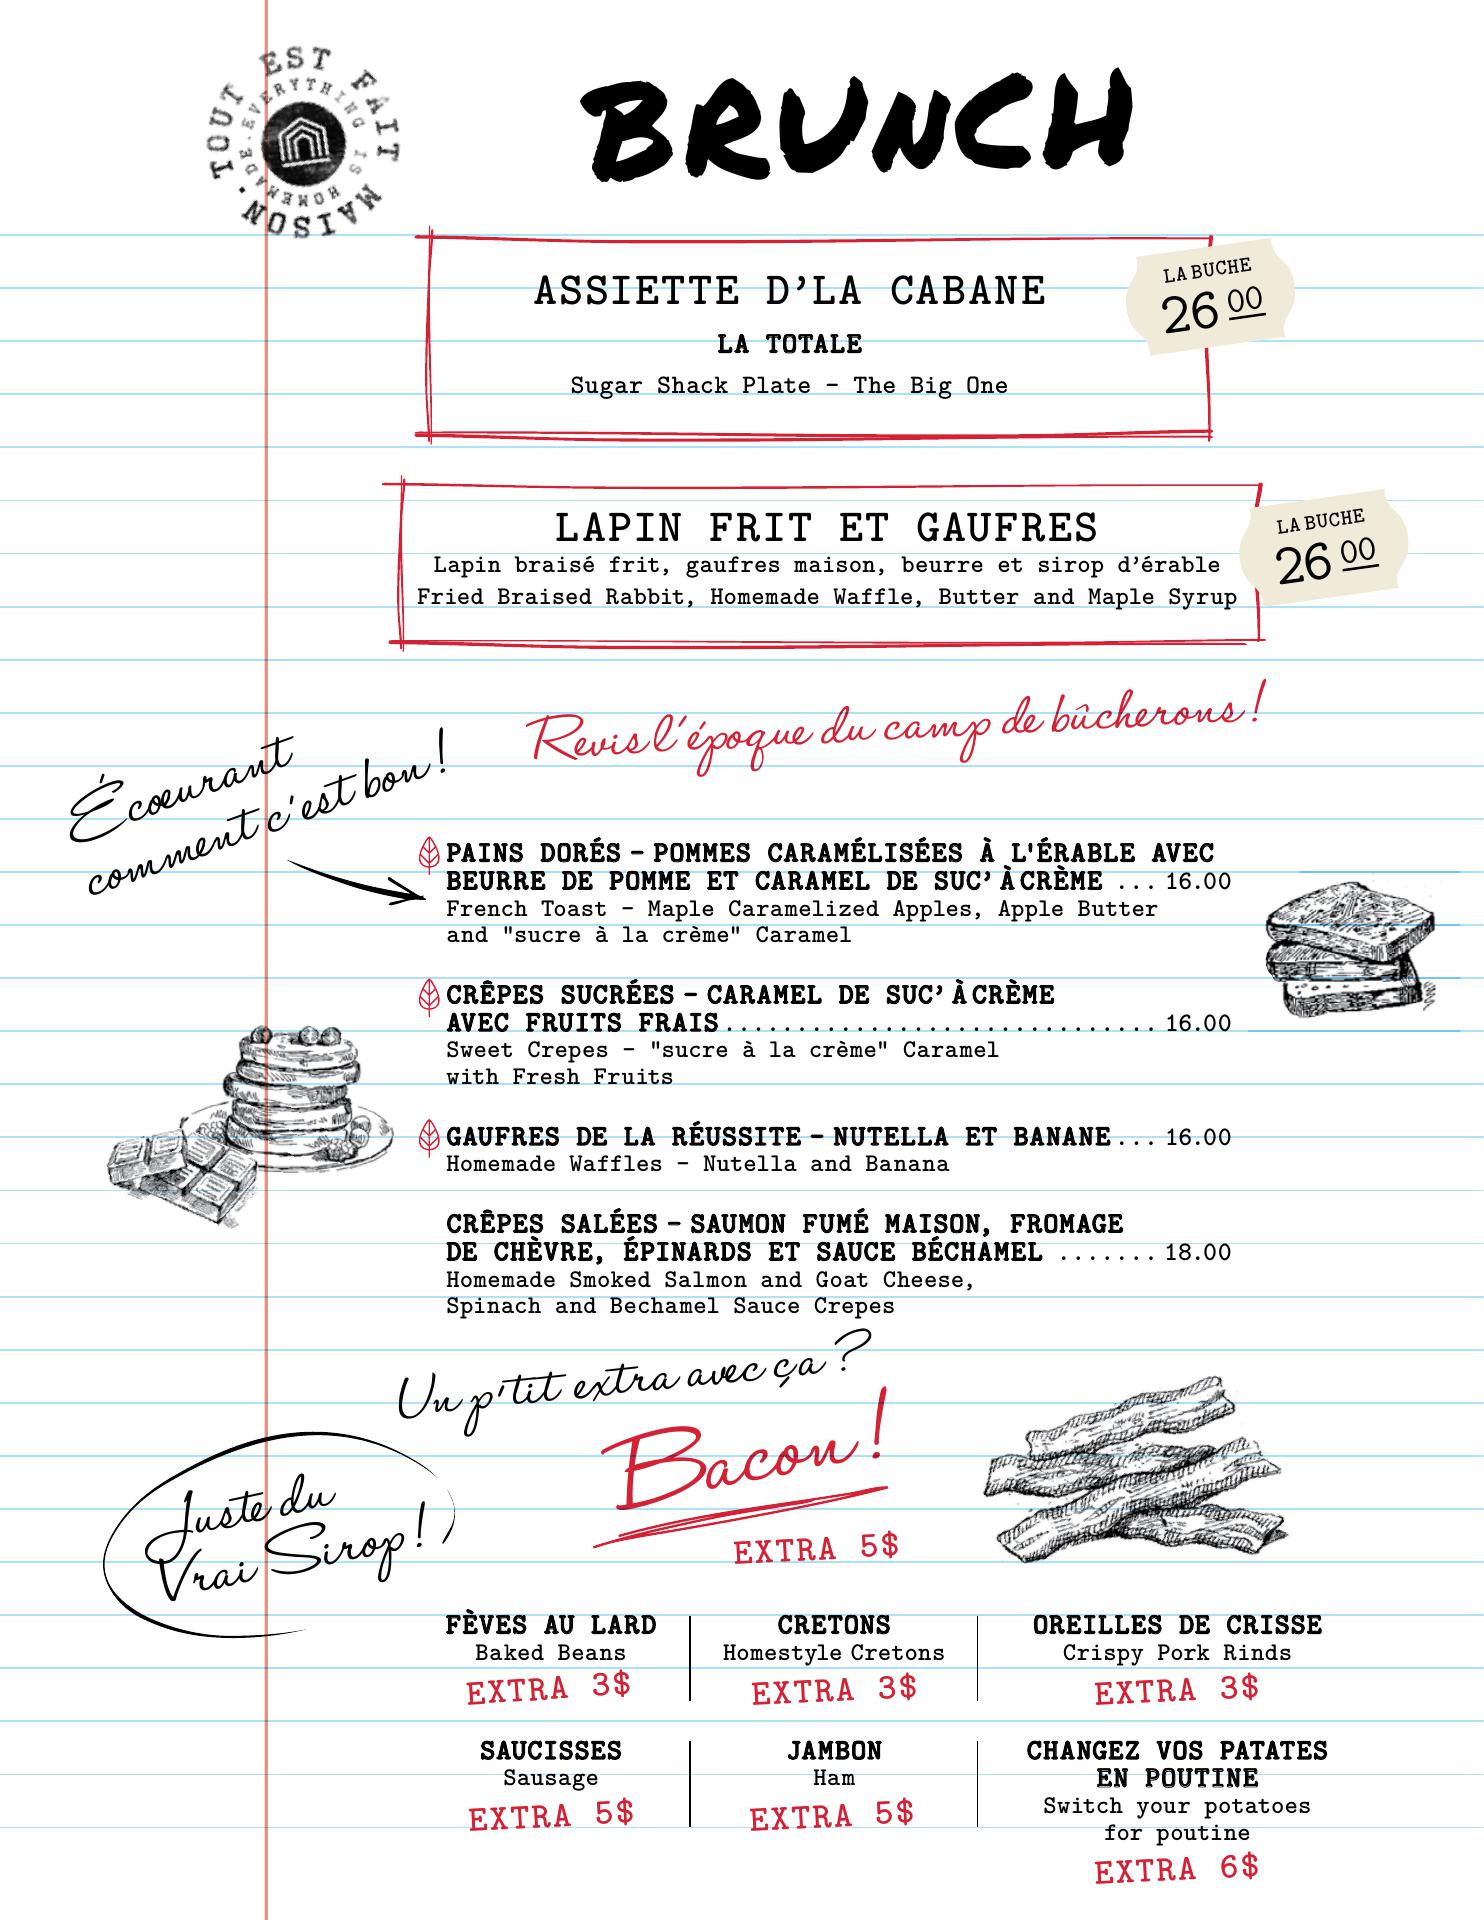 TOUT EST FAIT MAISON.
EVERYTHING IS HOMEMADE.
BRUNCH
ASSIETTE D'LA CABANE
LA TOTALE
Sugar Shack Plate - The Big One
LA BUCHE
26 00
LAPIN FRIT ET GAUFRES
Lapin braisé frit, gaufres maison, beurre et sirop d'érable
Fried Braised Rabbit, Homemade Waffle, Butter and Maple Syrup
LA BUCHE
26 00
Revis l'époque du camp de bûcherons !
Écœurant
comment c'est bon !
PAINS DORÉS - POMMES CARAMÉLISÉES À L'ÉRABLE AVEC
BEURRE DE POMME ET CARAMEL DE SUC' À CRÈME ... 16.00
French Toast - Maple Caramelized Apples, Apple Butter
and "sucre à la crème" Caramel
CRÊPES SUCRÉES - CARAMEL DE SUC' À CRÈME
AVEC FRUITS FRAIS.............................. 16.00
Sweet Crepes - "sucre à la crème" Caramel
with Fresh Fruits
GAUFRES DE LA RÉUSSITE - NUTELLA ET BANANE... 16.00
Homemade Waffles - Nutella and Banana
CRÊPES SALÉES - SAUMON FUMÉ MAISON, FROMAGE
DE CHÈVRE, ÉPINARDS ET SAUCE BÉCHAMEL ....... 18.00
Homemade Smoked Salmon and Goat Cheese,
Spinach and Bechamel Sauce Crepes
Un p'tit extra avec ça ?
Bacon !
EXTRA 5$
Juste du
Vrai Sirop !
FÈVES AU LARD
Baked Beans
EXTRA 3$
CRETONS
Homestyle Cretons
EXTRA 3$
OREILLES DE CRISSE
Crispy Pork Rinds
EXTRA 3$
SAUCISSES
Sausage
EXTRA 5$
JAMBON
Ham
EXTRA 5$
CHANGEZ VOS PATATES
EN POUTINE
Switch your potatoes
for poutine
EXTRA 6$